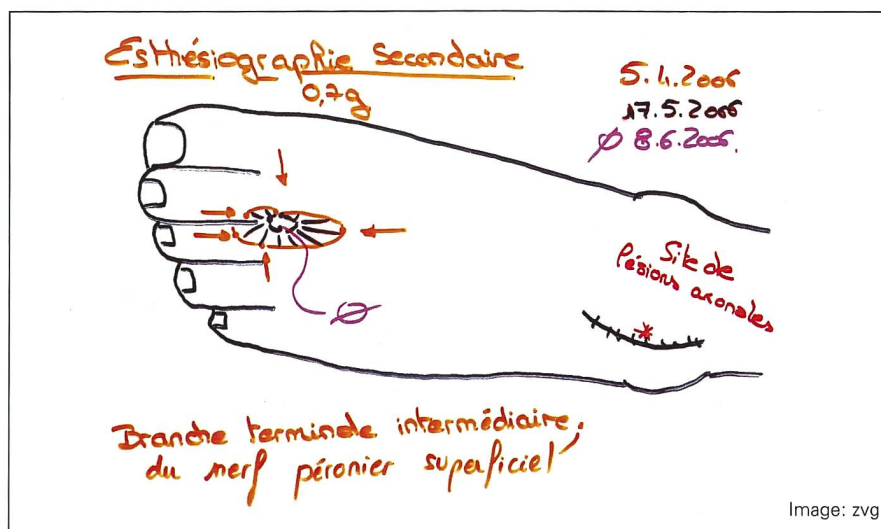 Esthésiographie Secondaire
0,7g
5.4.2006
17.5.2006
Ø 8.6.2006.
Site de
lésions axonales
*
Ø
Branche terminale intermédiaire,
du nerf péronier superficiel
Image: zvg